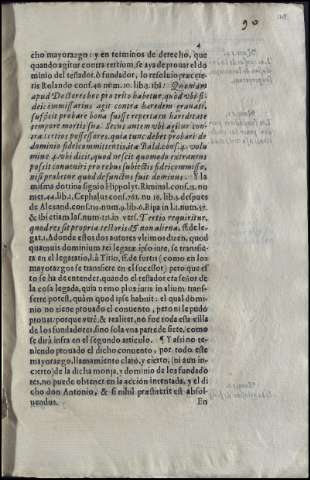 90
cho mayorazgo: y en terminos de derecho, que
quando agitur contra tertium, se aya de prouar el do
minio del testador, ò fundador, lo resoluio præcie
tis Rolando conf. 40. num. 10. lib. 2. ibi: Quoniam
apud Doctores hec pro reto habetur, quod vbi fi-
dei commissarius agit contra hæredem grauati,
sufficit probare bona fuisse repertam in hæreditate
tempore mortis suæ. Secus autem vbi agitur con-
tra tertios possessores, quia tunc debet probare de
dominio fidei committentis, ita Bald. conf. 4. volu
mine 4. vbi dicit, quod nescit quomodo extraneus
possit conueniri pro rebus subiectis fidei commisso,
nisi probetur quod defunctus fuit dominus. Y la
misma dotrina siguio Hippolyt. Riminal. conf. 12. nu
mer. 44. lib. 1. Cephalus conf. 701. nu. 16. lib. 5. despues
de Alexand. conf. 112. num. 9. lib. 6. Ripa in l. 1. num. 97.
& ibi etiam Ias. num. 121. in vers. Tertio requiritur,
quod res sit propria testatoris & non aliena. ff. de le-
gat. 1. Adonde estos dos autores vltimos dizen, quod
quamuis dominium rei legatæ ipso iure, se transfie-
ra en el legatario, l. à Titio, ff. de furtis (como en los
mayorazgos se transfiere en el sucessor) pero que es-
to se ha de entender, quando el testador era señor de
la cosa legada, quia nemo plus iuris in alium transf-
ferre potest, quàm quod ipse habuit: el qual domi-
nio no tiene prouado el conuento, pero ni le pudo
prouar: porque verè, & realiter, no fue toda esta villa
de los fundadores, sino sola vna parte de siete, como
se dirà infra en el segundo articulo. ¶ Y assi no te
niendo prouado el dicho conuento, por todo este
mayorazgo, llamamiento claro, y cierto, (ni aun in-
cierto) de la dicha monja, y dominio de los fundado
res, no puede obtener en la acción intentada, y el di
cho don Antonio, & si nihil præstiterit est absol-
uendus.
En